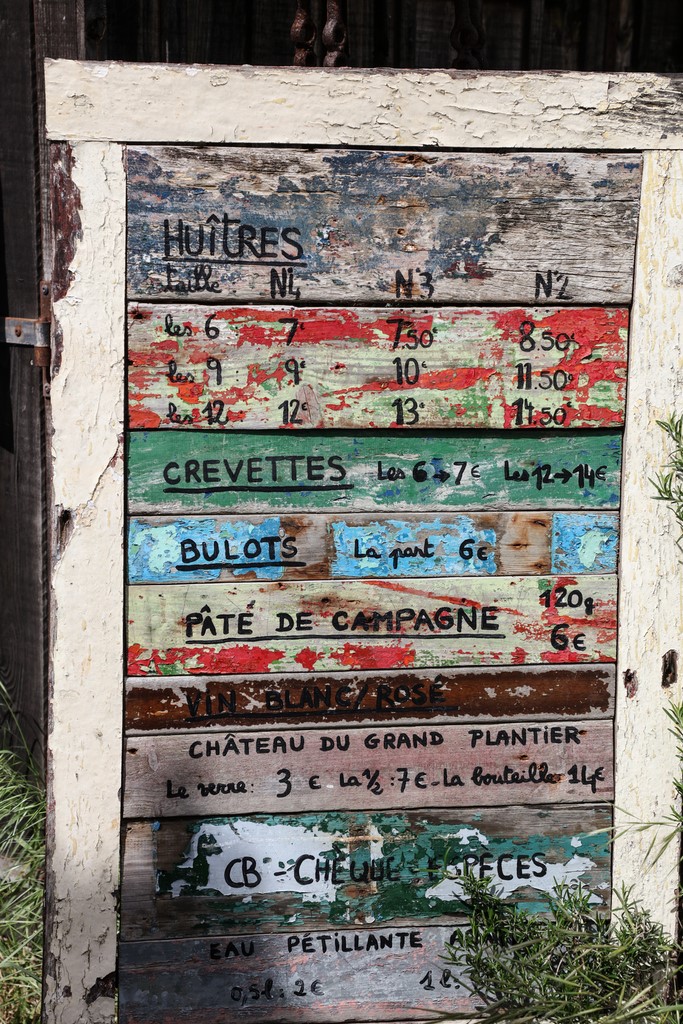 HUÎTRES
taille N°4 N°3 N°2
les 6 7€ 7.50€ 8.50€
les 9 9€ 10€ 11.50€
les 12 12€ 13€ 14.50€
CREVETTES Les 6→7€ Les 12→14€
BULOTS La part 6€
PÂTÉ DE CAMPAGNE 120g
6€
VIN BLANC/ROSÉ
CHÂTEAU DU GRAND PLANTIER
Le verre: 3 € La ½ : 7€ - La bouteille 14€
CB - CHÈQUE - ESPÈCES
EAU PÉTILLANTE
0,5l: 2€ 1l.